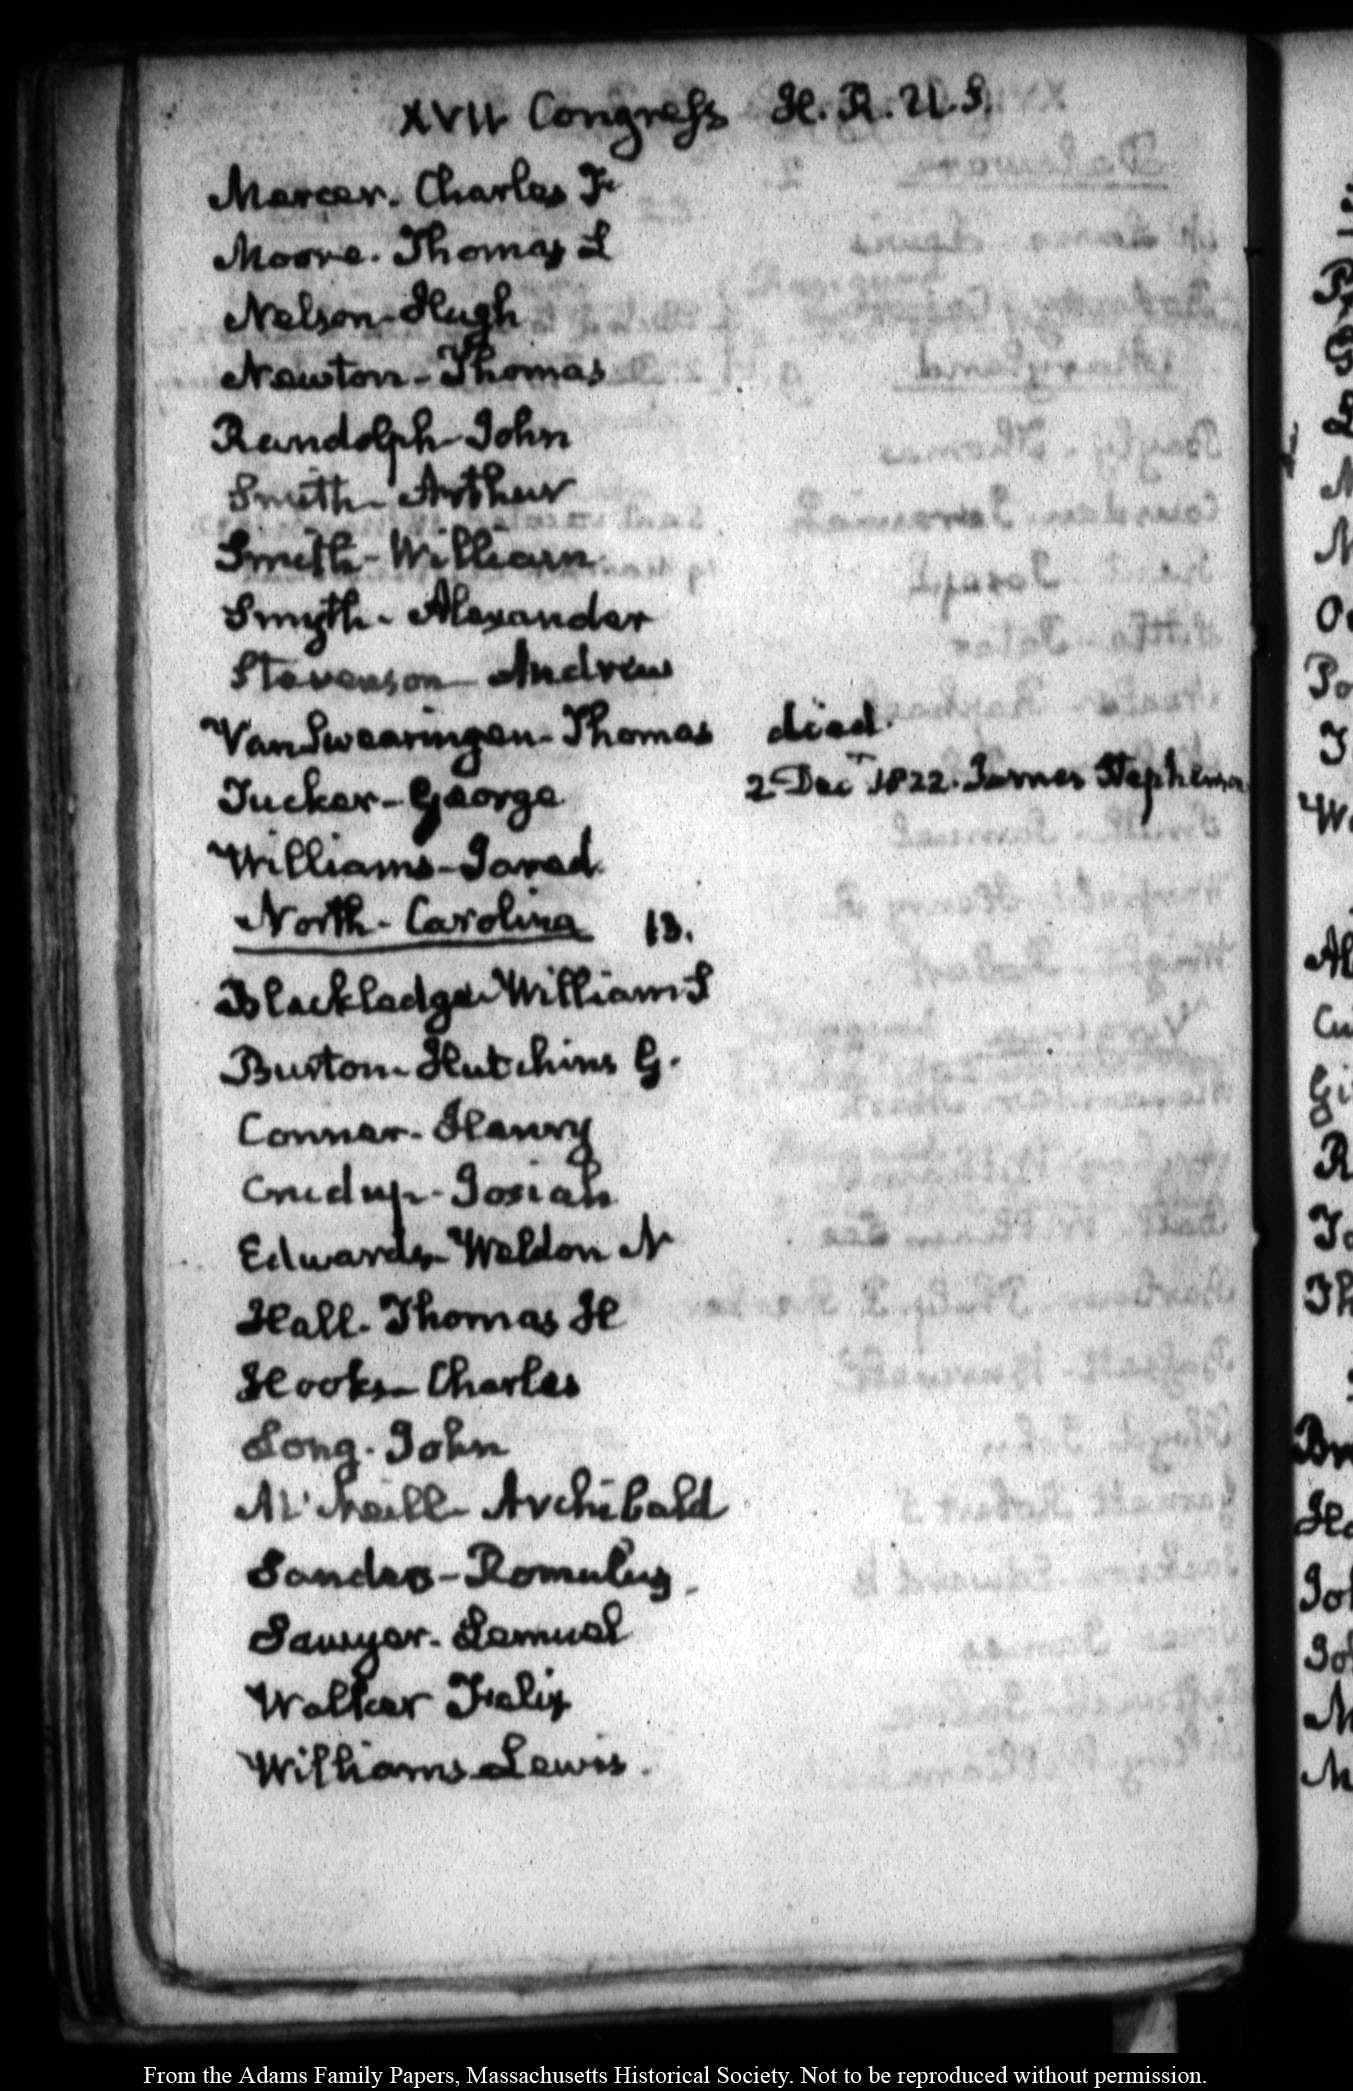 XVII Congress H. R. U. S.
Mercer. Charles F
Moore. Thomas L
Nelson-Hugh
Newton-Thomas
Randolph-John
Smith-Arthur
Smith-William
Smyth-Alexander
Stevenson-Andrew
Van Swearingen-Thomas died.
Tucker-George 2 Dec r 1822. James Stephenson
Williams-Jared.
North-Carolina 13.
Blackledge William S
Burton-Hutchins G.
Conner-Henry
Crudup-Josiah
Edwards-Weldon N
Hall-Thomas H
Hooks-Charles
Long-John
M'Neill-Archibald
Sanders-Romulus.
Sawyer-Lemuel
Walker Felix
Williams-Lewis.
From the Adams Family Papers, Massachusetts Historical Society. Not to be reproduced without permission.